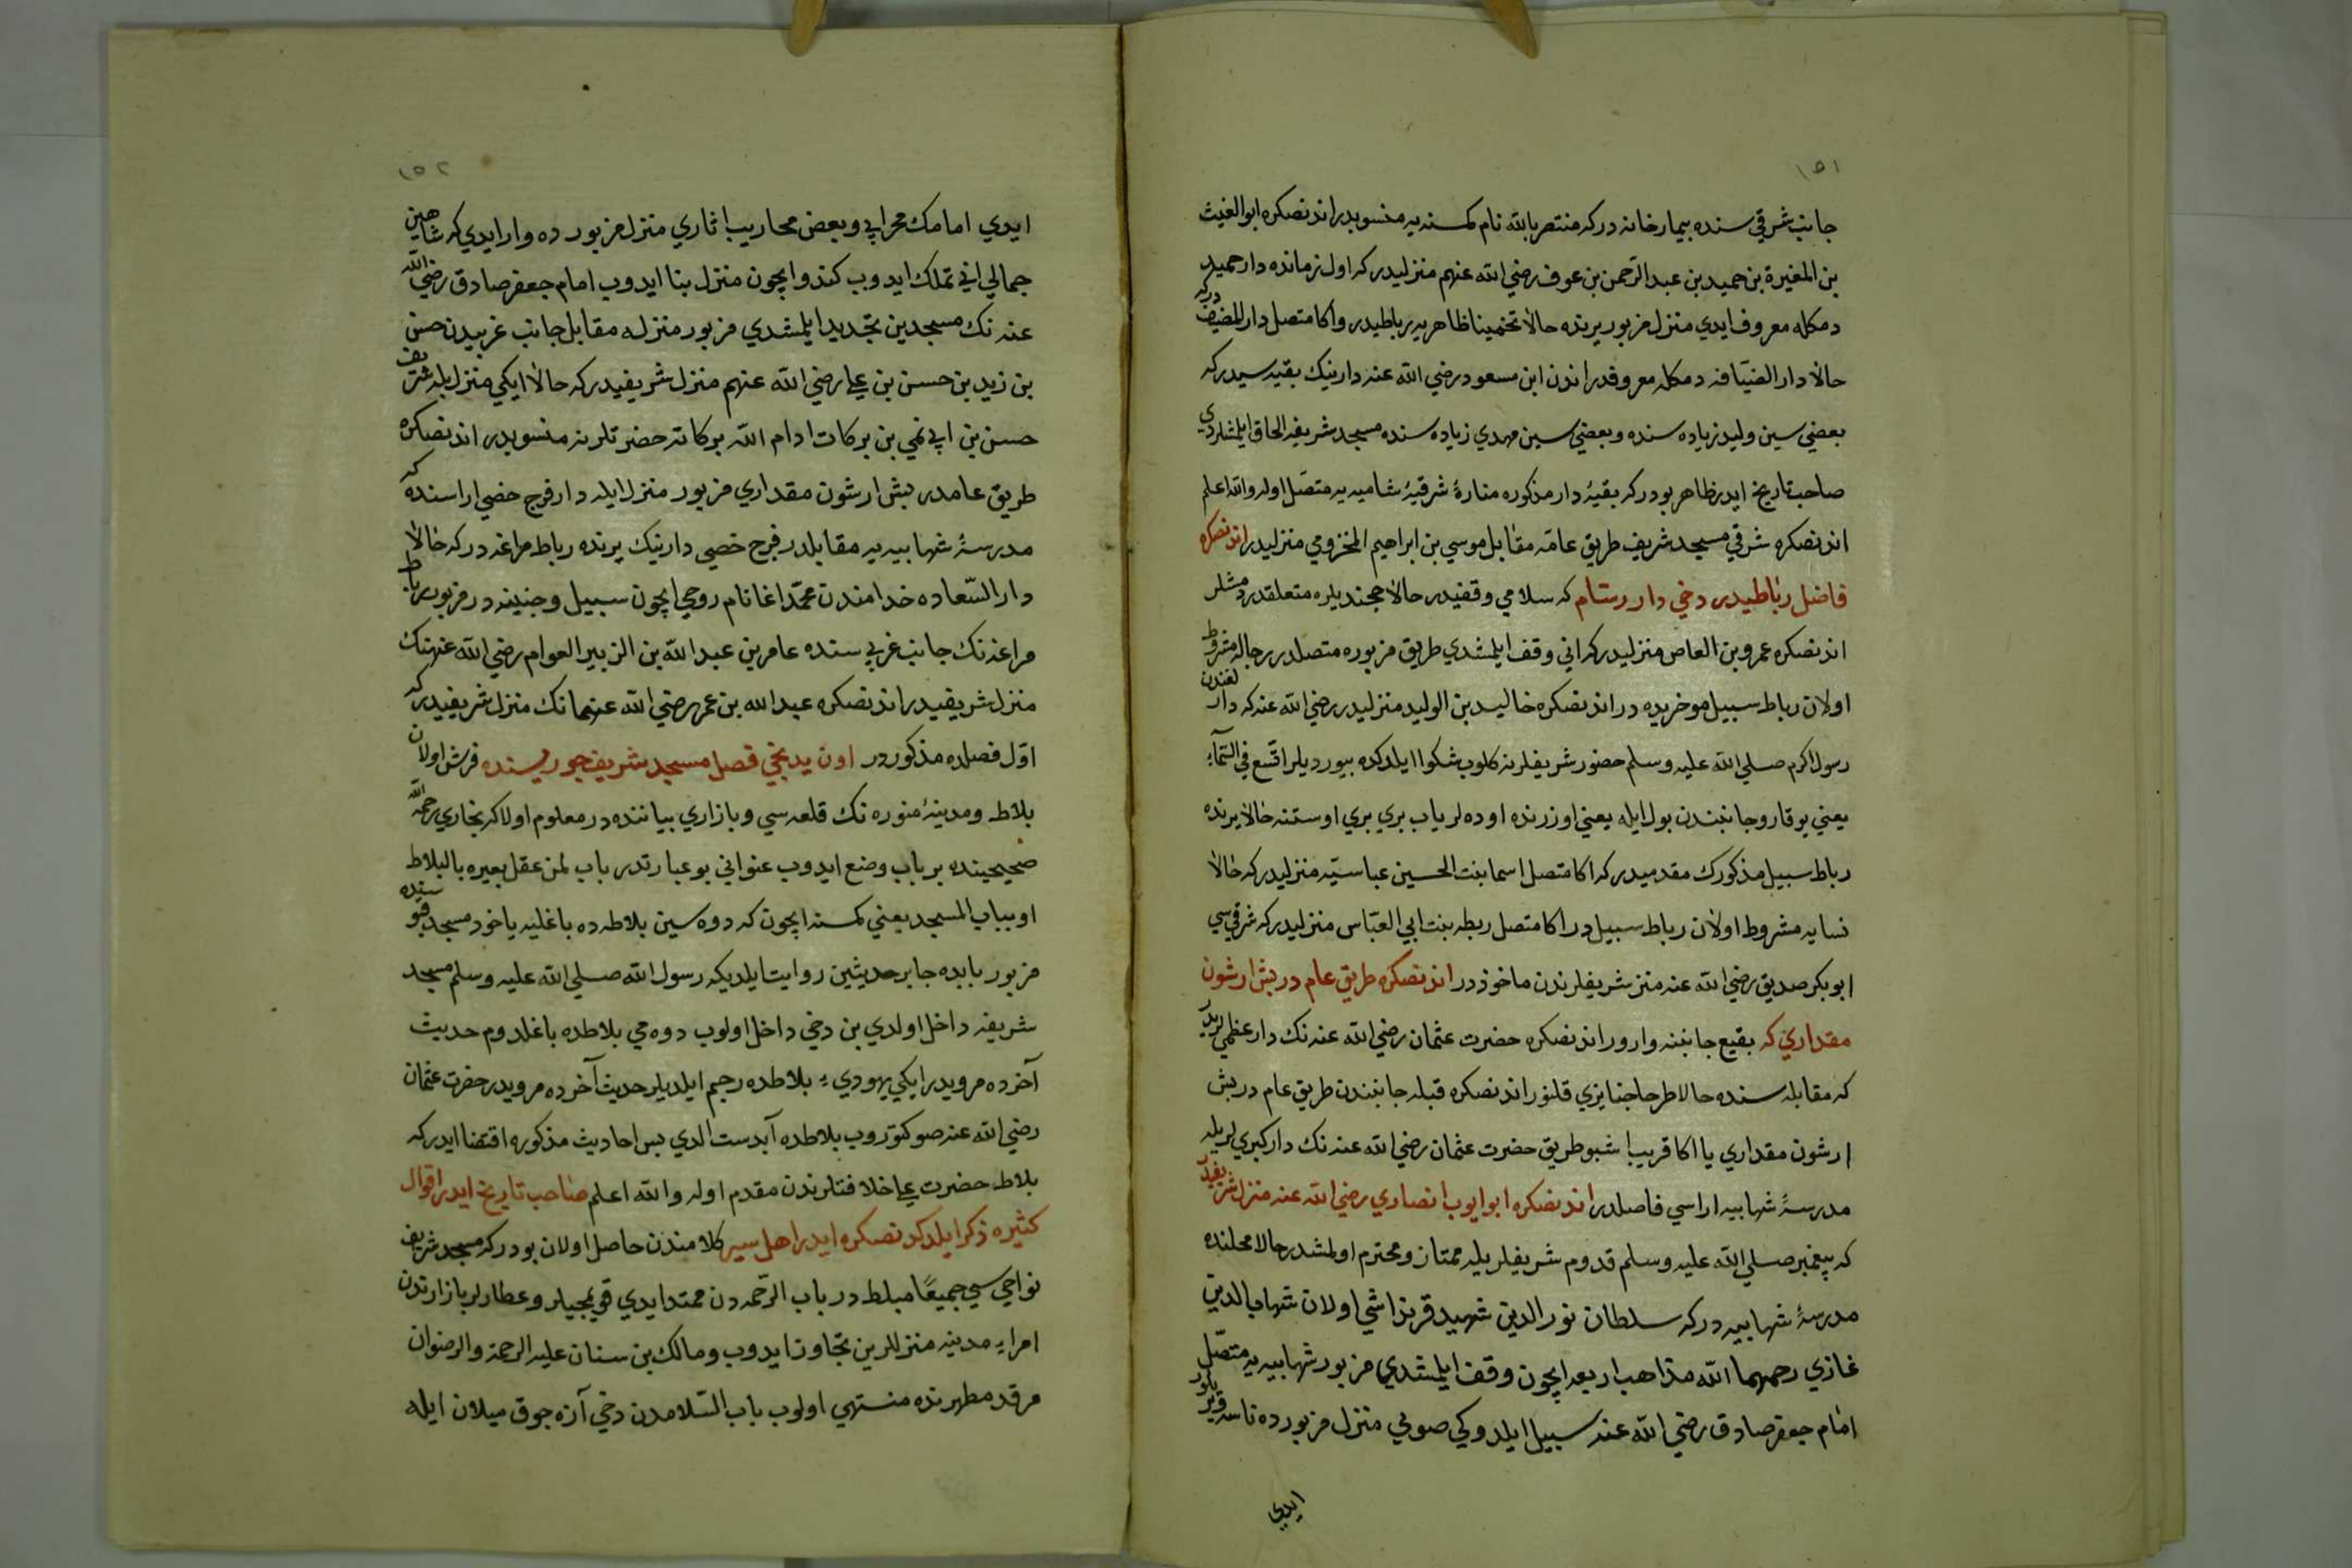 ١٥١
جانب شرقي سنده بيمارخانه در كه منتصر بالله نام كمسنه يه منسوبدر اندنصكره ابو الغيث
بن المغيرة بن حميد بن عبد الرحمن بن عوف رضي الله عنهم منزليدر كه اول زمانده دار حميد
دمكله معروف ايدي منزل مزبور يرنده حالا تخمينا ظاهر يه رباطيدر واكا متصل دار المضيف دركه
حالا دار الضيافه دمكله معروفدر اندن ابن مسعود رضي الله عنه دارينيك بقيه سيدر كه
بعضي سين وليد زياده سنده وبعضي سين مهدي زياده سنده مسجد شريفه الحاق ايلمشلردي
صاحب تاريخ ايدر ظاهر بودر كه بقيۀ دار مذكوره منارۀ شرقيۀ شاميه يه متصل اوله والله اعلم
اندنصكره شرقي مسجد شريف طريق عامّه مقابل موسي بن ابراهيم المخزومي منزليدر اندنصكره
فاضل رباطيدر دخي دار رستام كه سلامي وقفيدر حالا هجنديلره متعلقدر دمشلر
اندنصكره عمرو بن العاص منزليدر كه اني وقف ايلمشدي طريق مزبوره متصلدر رجاله مشروط
اولان رباط سبيل موخريده در اندنصكره خاليد بن الوليد منزليدر رضي الله عنه كه دار لغندن
رسول اكرم صلي الله عليه وسلم حضور شريفلرنه كلوب شكوا ايلدكده بيورديلر اتّسع في السّمآء
يعني يوقارو جانبندن بول ايله يعني اوزرنده اوده لر ياب بري بري اوستنه حالا يرنده
رباط سبيل مذكورك مقدميدر كه اكا متصل اسما بنت الحسين عباسيّه منزليدر كه حالا
نسايه مشروط اولان رباط سبيل در اكا متصل ريطه بنت ابي العبّاس منزليدر كه شرقي سي
ابو بكر صديق رضي الله عنه منز شريفلرندن ماخوذ در اندنصكره طريق عام در بش ارشون
مقداري كه بقيع جانبنه وارور اندنصكره حضرت عثمان رضي الله عنه نك دار عظمي لريدر
كه مقابله سنده حالا طرحا جنايزي قلنور اندنصكره قبله جانبندن طريق عام در بش
ارشون مقداري يا اكا قريب اشبو طريق حضرت عثمان رضي الله عنه نك دار كبري لريله
مدرسۀ شهابيه اراسي فاصلدر اندنصكره ابو ايوب انصاري رضي الله عنه منزل شريفيدر
كه پيغمبر صلي الله عليه وسلم قدوم شريفلريله ممتاز ومحترم اولمشدر حالا محلنده
مدرسۀ شهابيه در كه سلطان نور الدين شهيد قرنداشي اولان شهاب الدين
غازي رحمهما الله مذاهب اربعه ايچون وقف ايلمشدي مزبور شهابيه يه متصّل
امام جعفر صادق رضي الله عنه سبيل ايلدوكي صويي منزل مزبور ده ناسه ويريلور
ايدي
١٥٢
ايدي امامك محرابي وبعض محاريب اثاري منزل مزبور ده وار ايدي كه شاهين
جمالي اني تملك ايدوب كندو ايچون منزل بنا ايدوب امام جعفر صادق رضي الله
عنه نك مسجدين تجديد ايلمشدي مزبور منزله مقابل جانب غربيدن حسن
بن زيد بن حسن بن علي رضي الله عنهم منزل شريفيدر كه حالا ايكي منزل بله شريف
حسن بن ابي نمي بن بركات ادام الله بركاته حضرتلرنه منسوبدر اندنصكره
طريق عامدر بش ارشون مقداري مزبور منزل ايله دار فرج خصي اراسنده كه
مدرسۀ شهابيه يه مقابلدر فرج خصي دارينيك يرنده رباط مراغه در كه حالا
دار السّعاده خدامندن محمّد اغا نام روحي ايچون سبيل وجنينه در مزبور رباط
مراغه نك جانب غربي سنده عامر بن عبد الله بن الزبير العوام رضي الله عنهنك
منزل شريفيدر اندنصكره عبد الله بن عمر رضي الله عنهما نك منزل شريفيدر كه
اوّل فصلده مذكور در اون يدنجي فصل مسجد شريف جوريسنده فرش اولان
بلاط ومدينۀ منوره نك قلعه سي وبازاري بياننده در معلوم اولا كه بخاري رحمه الله
صحيحينده بر باب وضع ايدوب عنواني بو عبارتدر باب لمن عقل بعيره بالبلاط
او بباب المسجد يعني كمسنه ايچون كه دوه سين بلاطه ده باغليه ياخود مسجد قپوسنده
مزبور بابده جابر حديثين روايت ايلديكه رسول الله صلي الله عليه وسلم مسجد
شريفه داخل اولدي بن دخي داخل اولوب دوه مي بلاطده باغلدوم حديث
آخرده مرويدر ايكي يهودي يه بلاطده رجم ايلديلر حديث آخرده مرويدر حضرت عثمان
رضي الله عنه صو كتوروب بلاطده آبدست الدي بس احاديث مذكوره اقتضا ايدر كه
بلاط حضرت علي خلافتلرندن مقدم اوله والله اعلم صاحب تاريخ ايدر اقوال
كثيره ذكر ايلدكدنصكره ايدر اهل سير كلامندن حاصل اولان بودر كه مسجد شريف
نواحي سي جميعًا مبلط در باب الرّحمه دن ممتد ايدي قويمجيلر وعطارلر بازارندن
امراء مدينه منزللرين تجاوز ايدوب ومالك بن سنان عليه الرحمة والرضوان
مرقد مطهرنده منتهي اولوب باب السّلامدن دخي آزه جوق ميلان ايله